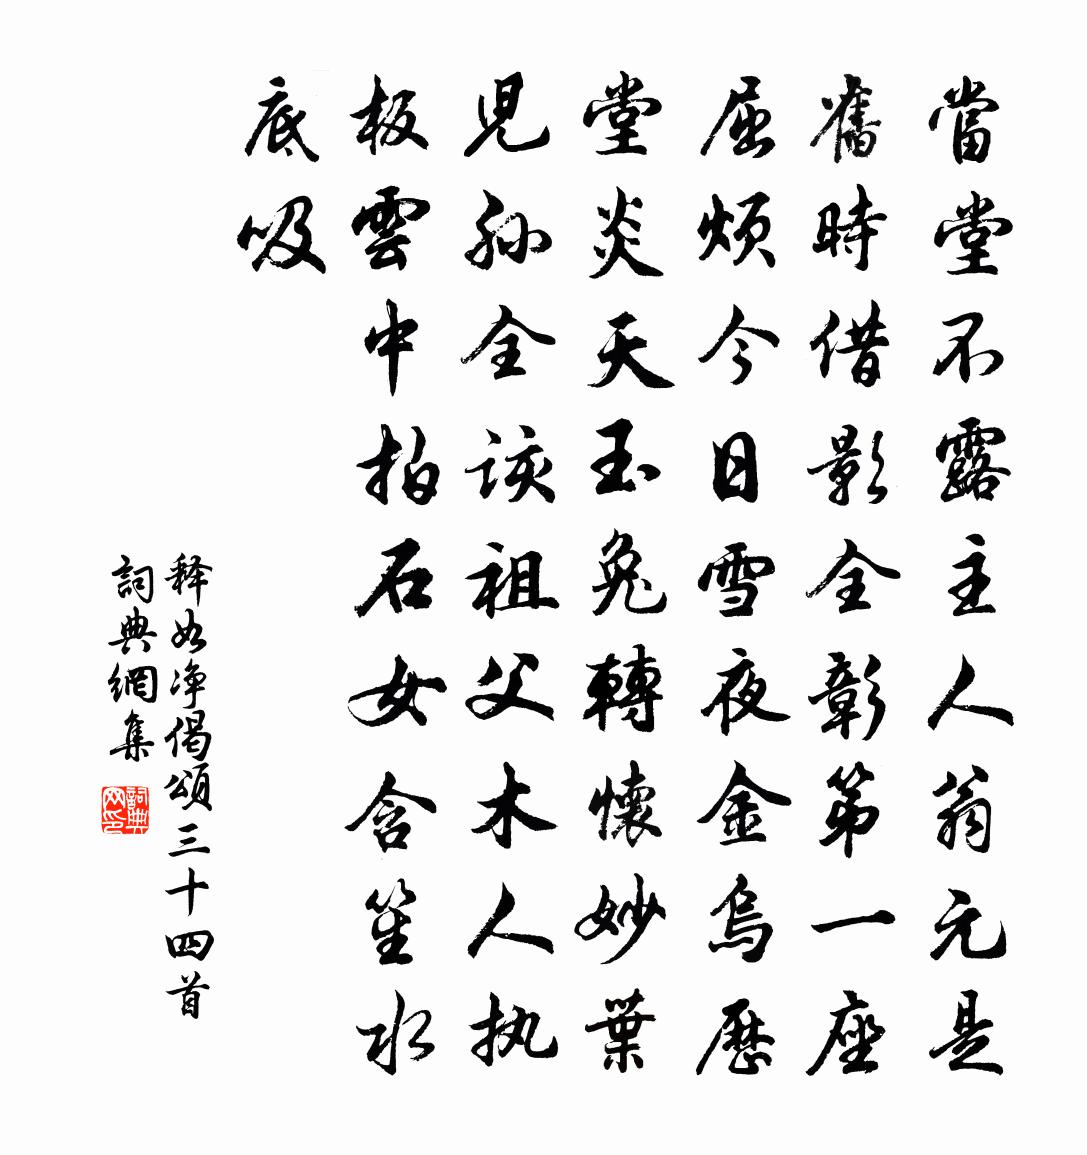 當堂不露主人翁元是
舊時借影全彰第一座
屈煩今日雪夜金烏歷
堂炎天玉兔轉懷妙葉
児孙全談祖父木人执
板雲中拍石女含笙水
底吸
释如净偈頌三十四首
詞典網集
詞典网印